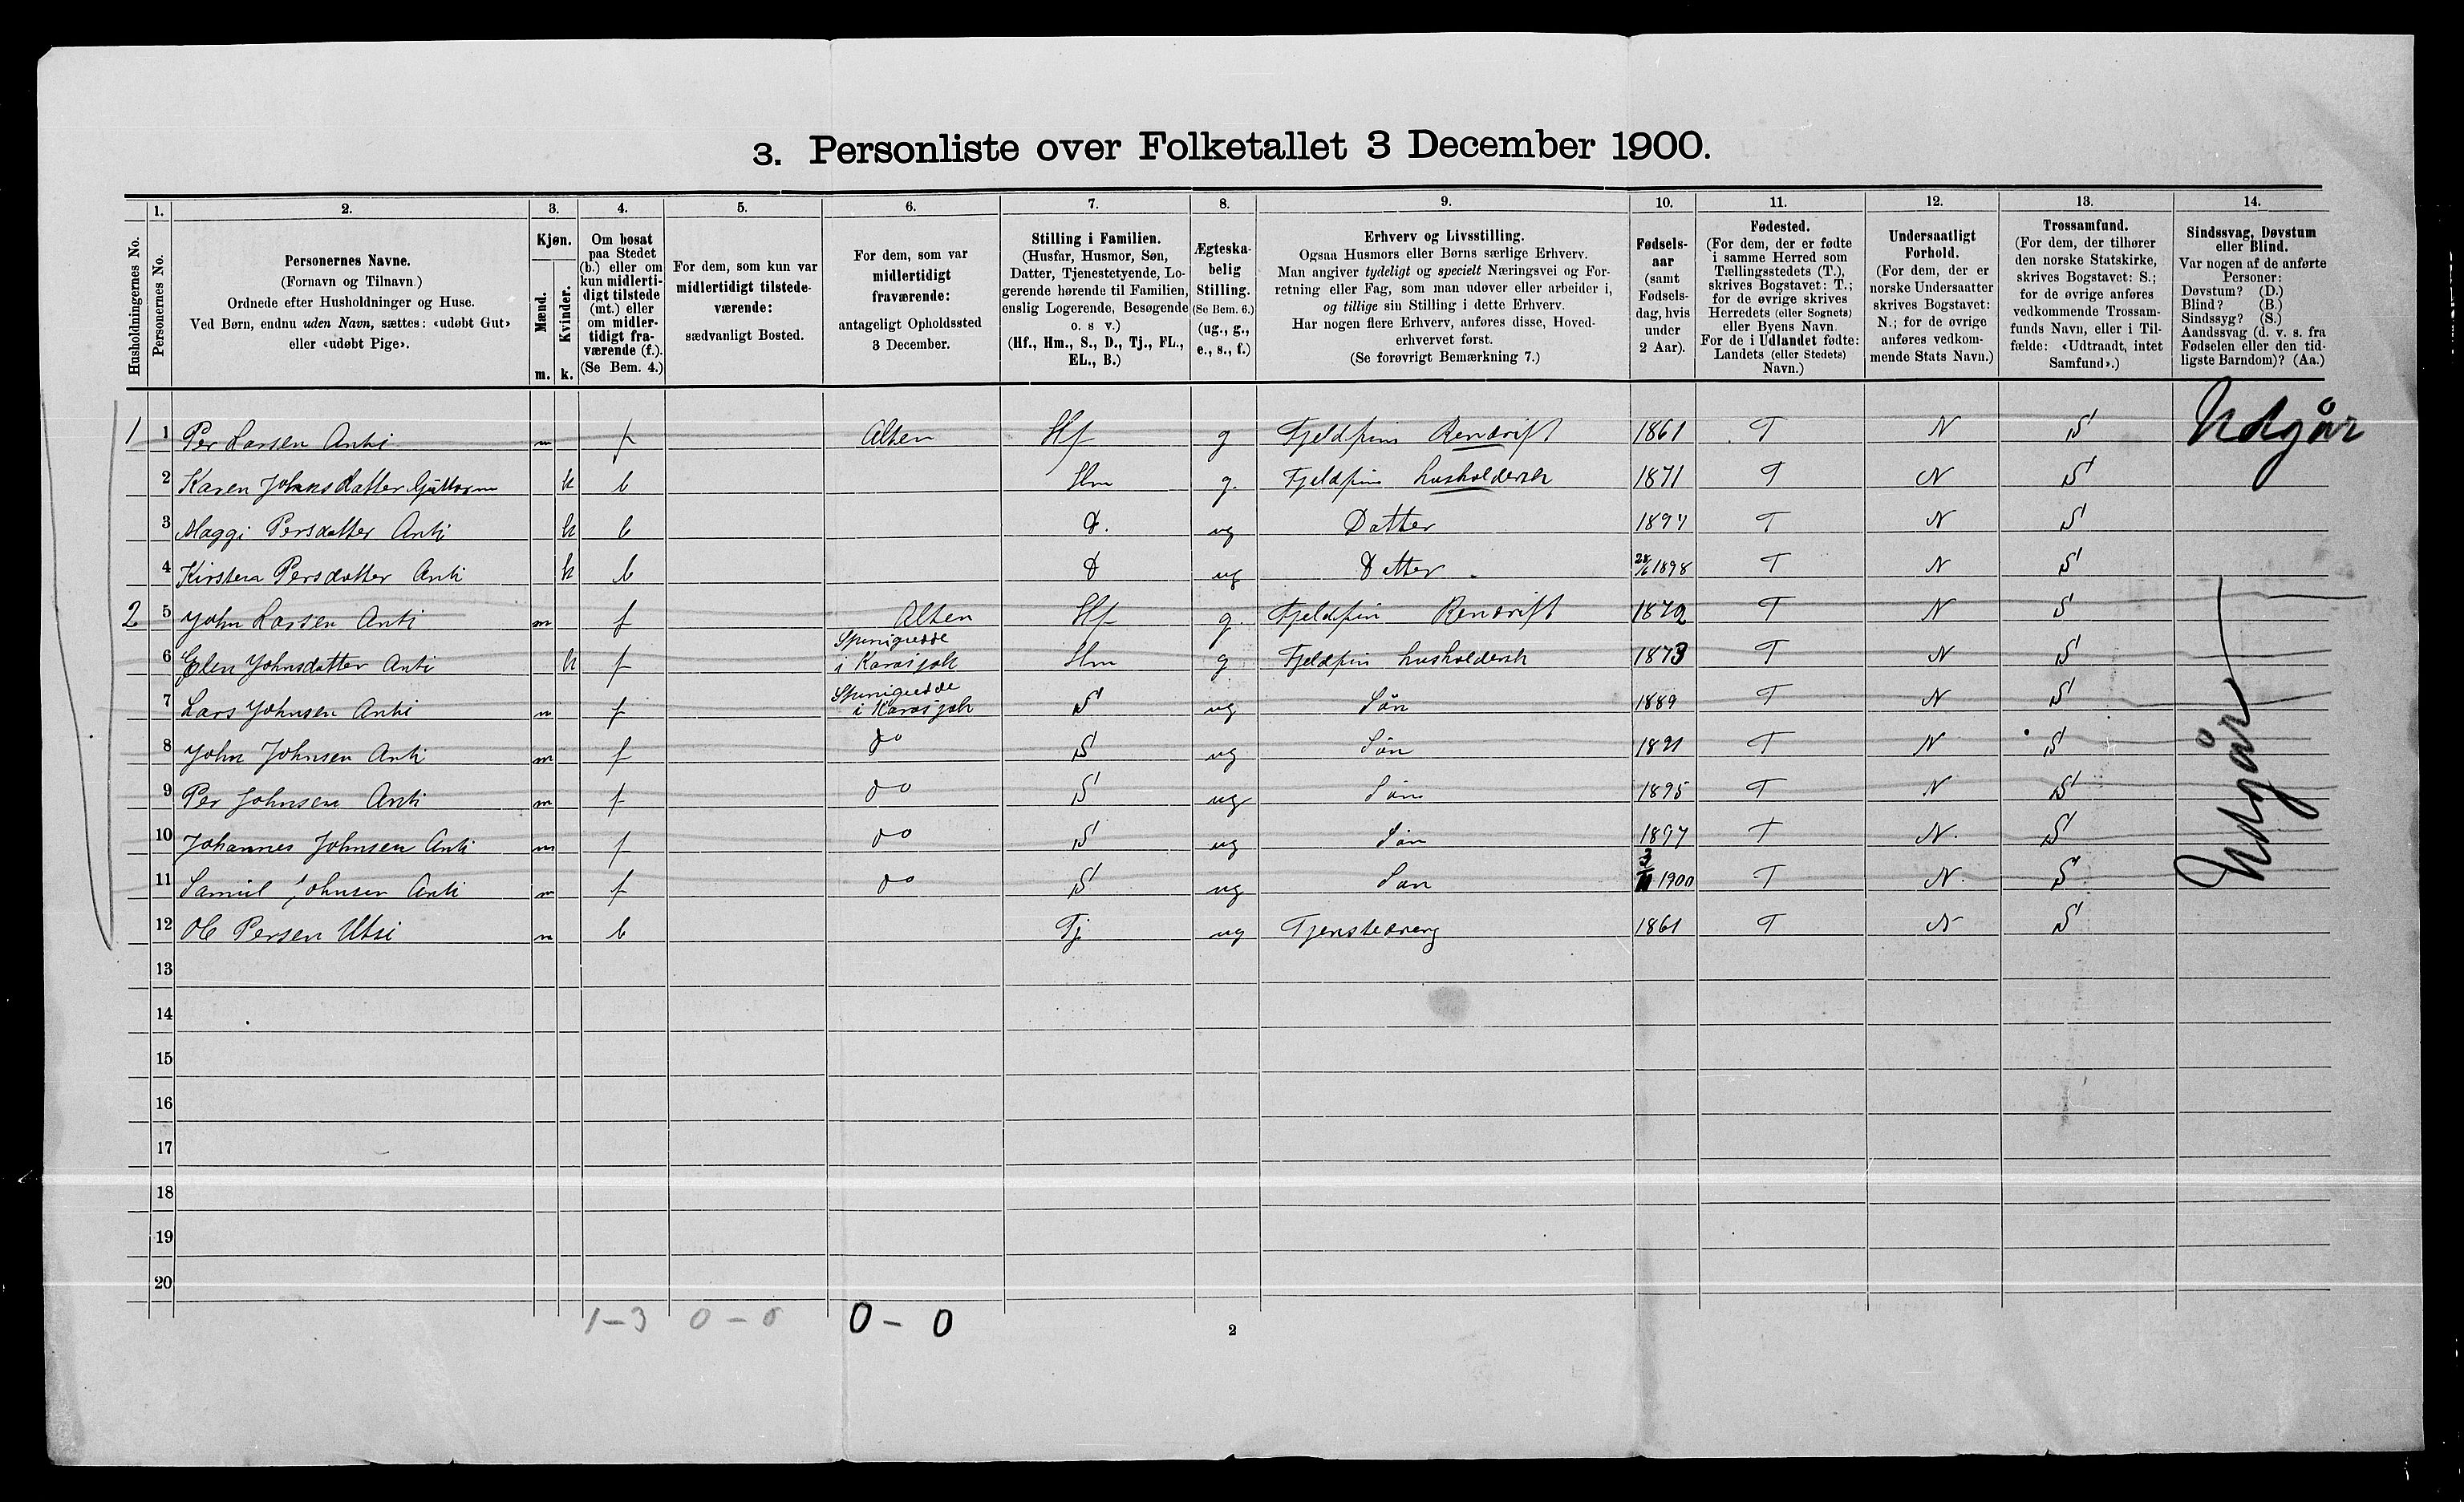 3. Personliste over Folketallet 3 December 1900.
1. 2. 3. 4. 5. 6. 7. 8. 9. 10. 11. 12. 13. 14.
Husholdningernes No.
Personernes No.
Personernes Navne.
(Fornavn og Tilnavn.)
Ordnede efter Husholdninger og Huse.
Ved Børn, endnu uden Navn, sættes: «udøbt Gut»
eller «udøbt Pige».
Kjøn.
Mænd.
Kvinder.
m. k.
Om bosat
paa Stedet
(b.) eller om
kun midlerti-
digt tilstede
(mt.) eller
om midler-
tidigt fra-
værende (f.).
(Se Bem. 4.)
For dem, som kun var
midlertidigt tilstede-
værende:
sædvanligt Bosted.
For dem, som var
midlertidigt
fraværende:
antageligt Opholdssted
3 December.
Stilling i Familien.
(Husfar, Husmor, Søn,
Datter, Tjenestetyende, Lo-
gerende hørende til Familien,
enslig Logerende, Besøgende
o. s v.)
(Hf., Hm., S., D., Tj., FL.,
EL., B.)
Ægteska-
belig
Stilling.
(Se Bem. 6.)
(ug., g.,
e., s., f.)
Erhverv og Livsstilling.
Ogsaa Husmors eller Børns særlige Erhverv.
Man angiver tydeligt og specielt Næringsvei og For-
retning eller Fag, som man udøver eller arbeider i,
og tillige sin Stilling i dette Erhverv.
Har nogen flere Erhverv, anføres disse, Hoved-
erhvervet først.
(Se forøvrigt Bemærkning 7.)
Fødsels-
aar
(samt
Fødsels-
dag, hvis
under
2 Aar).
Fødested.
(For dem, der er fødte
i samme Herred som
Tællingsstedets (T.),
skrives Bogstavet: T.;
for de øvrige skrives
Herredets (eller Sognets)
eller Byens Navn.
For de i Udlandet fødte:
Landets (eller Stedets)
Navn.)
Undersaatligt
Forhold.
(For dem, der er
norske Undersaatter
skrives Bogstavet:
N.; for de øvrige
anføres vedkom-
mende Stats Navn.)
Trossamfund.
(For dem, der tilhører
den norske Statskirke,
skrives Bogstavet: S.;
for de øvrige anføres
vedkommende Trossam-
funds Navn, eller i Til-
fælde: «Udtraadt, intet
Samfund».)
Sindssvag, Døvstum
eller Blind.
Var nogen af de anførte
Personer:
Døvstum? (D.)
Blind? (B.)
Sindssyg? (S.)
Aandssvag (d. v. s. fra
Fødselen eller den tid-
ligste Barndom)? (Aa.)
1 1 Per Larsen Anti m f Alten Hf g Fjeldfin Rendrift 1861 T N S Udgår
2 Karen Johnsdatter k b Hm g. Fjeldfin husholdersk 1871 T N S
3 Maggi Persdatter Anti k b D. ug Datter 1897 T N S
4 Kirsten Persdatter Anti k b D ug Datter 1898 T N S
2 5 John Larsen Anti m f Alten Hf g. Fjeldfin Rendrift 1872 T N S
6 Elen Johnsdatter Anti k f i Karasjok Hm g Fjeldfin husholdersk 1873 T N S
7 Lars Johnsen Anti m f i Karasjok S ug Søn 1889 T N S Udgår
8 John Johnsen Anti m f do S ug Søn 1891 T N S
9 Per Johnsen Anti m f do S ug Søn 1895 T N S
10 Johannes Johnsen Anti m f do S ug Søn 1897 T N. S
11 Samuel Johnsen Anti m f do S ug Søn 1900 T N. S
12 Ole Persen Utsi m b Tj ug Tjenstedreng 1861 T N S
13
14
15
16
17
18
19
20
1-3 0-0 0-0
2